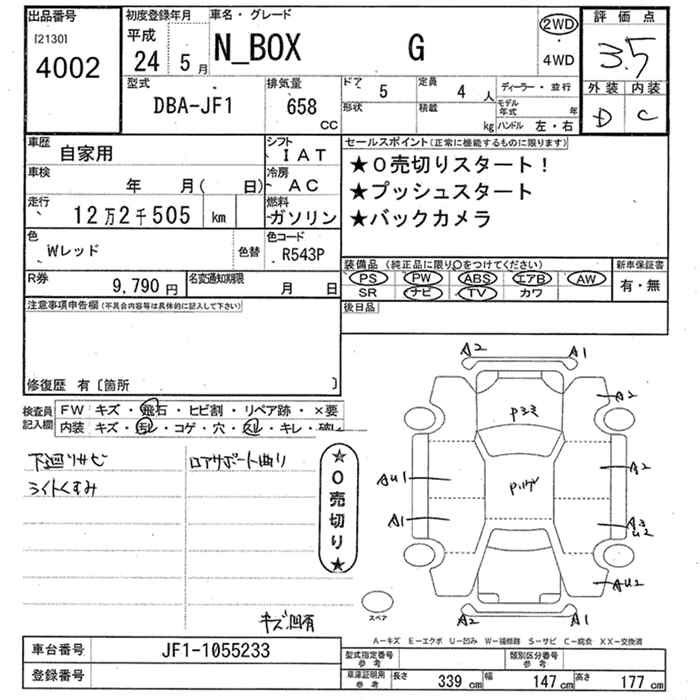 出品番号
[2130]
4002
初度登録年月
平成
24年 5月
車名・グレード
N_BOX G
2WD
4WD
評価点
3.5
外装 内装
D C
型式
DBA-JF1
排気量
658 CC
ドア 5
形状
定員 4人
積載 kg
ディーラー・並行
モデル年式 年
ハンドル 左・右
車歴 自家用
シフト IAT
車検 年 月( 日)
冷房 AC
走行 12万2千505 km
燃料 ガソリン
色 Wレッド
色替
色コード R543P
R券 9,790円
名変通知期限 月 日
セールスポイント(正常に機能するものに限ります)
★0売切りスタート!
★プッシュスタート
★バックカメラ
装備品(純正品に限り○をつけてください)
PS PW ABS エアB AW
SR ナビ TV カワ
新車保証書
有・無
後日品
注意事項申告欄(不具合内容等は具体的に記入して下さい)
修復歴 有〔箇所 〕
検査員記入欄
FW キズ・飛石・ヒビ割・リペア跡・×要
内装 キズ・汚レ・コゲ・穴・スレ・キレ・破レ
下廻りサビ
ライトくすみ
ロアサポート曲り
キズ凹有
★0売切り★
A2 A1
A2
A2
AU1
A1
AU2
A2 A1
スペア
A-キズ E-エクボ U-凹み W-補修跡 S-サビ C-腐食 XX-交換済
車台番号 JF1-1055233
登録番号
型式指定番号 参考
類別区分番号 参考
車庫証明用 参考
長さ 339 cm 幅 147 cm 高さ 177 cm